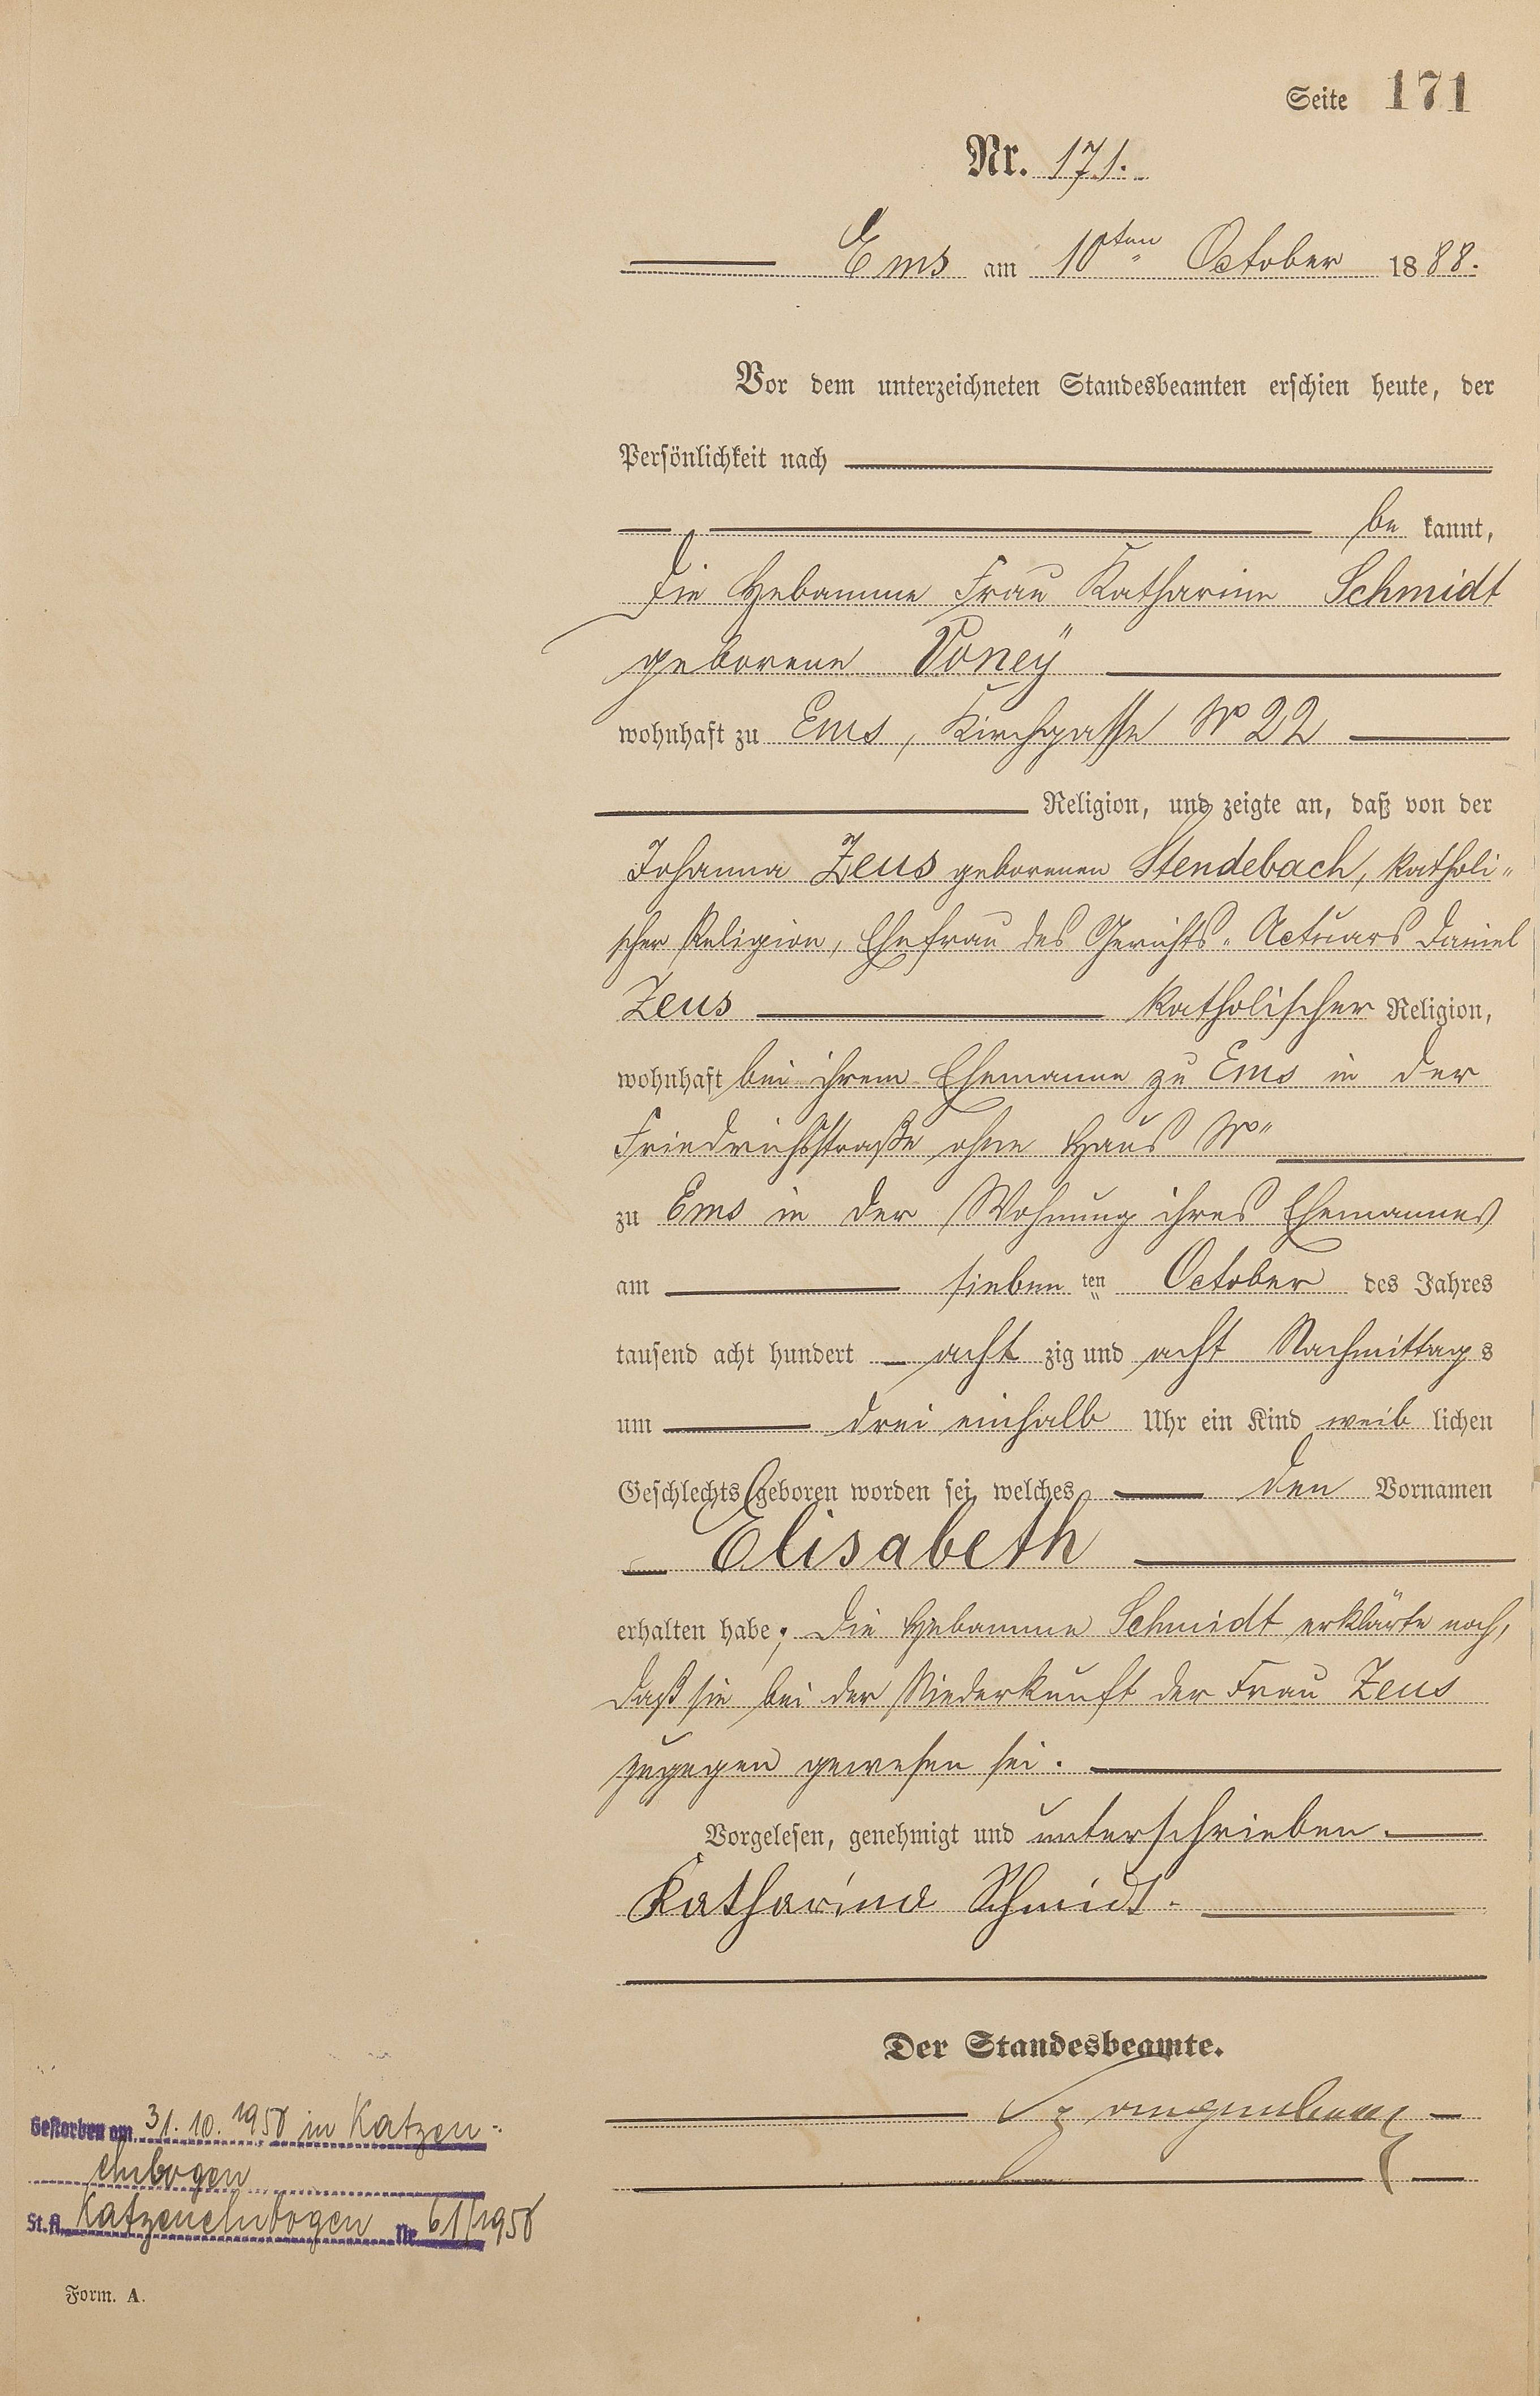 Seite 171
Nr. 171.
Ems am 10ten October 1888.
Vor dem unterzeichneten Standesbeamten erschien heute, der
Persönlichkeit nach
be kannt,
die Hebamme Frau Katharine Schmidt
geborene Poney
wohnhaft zu Ems, Kirchgasse No 22
Religion, und zeigte an, daß von der
Johanna Zeus geborenen Stendebach, katholi-
scher Religion, Ehefrau des Gerichts-Actuars Daniel
Zeus katholischer Religion,
wohnhaft bei ihrem Ehemanne zu Ems in der
Friedrichsstraße ohne Haus No
zu Ems in der Wohnung ihres Ehemannes
am sieben ten October des Jahres
tausend acht hundert acht zig und acht Nachmittags
um drei einhalb Uhr ein Kind weib lichen
Geschlechts geboren worden sei, welches den Vornamen
Elisabeth
erhalten habe; Die Hebamme Schmidt erklärte noch,
daß sie bei der Niederkunft der Frau Zeus
zugegen gewesen sei.
Vorgelesen, genehmigt und unterschrieben.
Katharina Schmidt.
Der Standesbeamte.
Gestorben am 31.10.1958 in Katzen-
elnbogen
St.A. Katzenelnbogen Nr. 61/1958
Form. A.